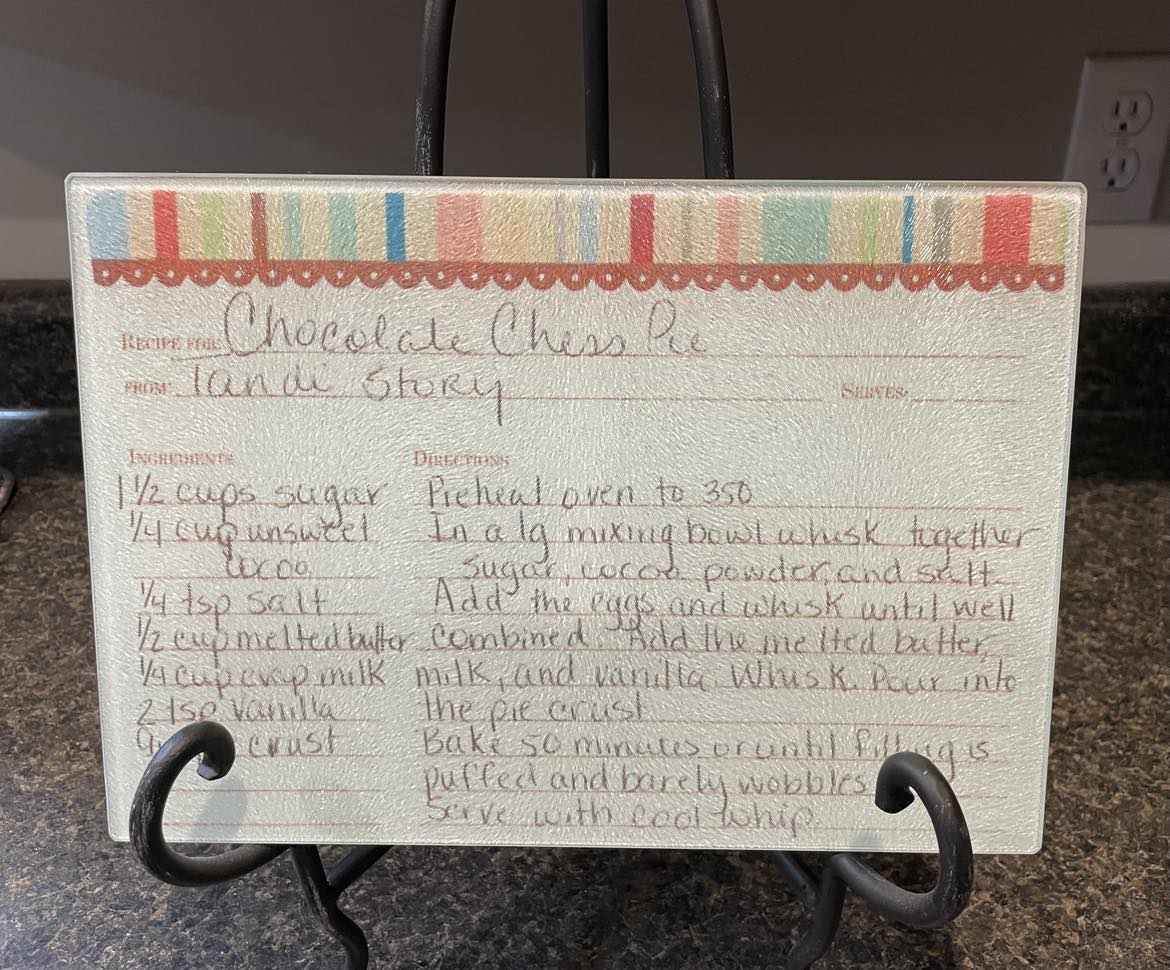 RECIPE FOR: Chocolate Chess Pie
FROM: Tandi Story SERVES:
INGREDIENTS DIRECTIONS
1 1/2 cups sugar Preheat oven to 350
1/4 cup unsweet In a lg mixing bowl whisk together
cocoa sugar, cocoa powder, and salt
1/4 tsp salt Add the eggs and whisk until well
1/2 cup melted butter combined. Add the melted butter,
1/4 cup evap milk milk, and vanilla. Whisk. Pour into
2 tsp vanilla the pie crust
crust Bake 50 minutes or until filling is
puffed and barely wobbles
Serve with cool whip.